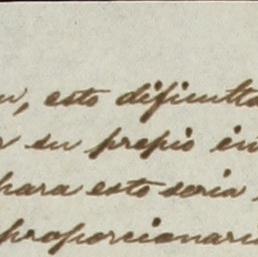 , esto dificulta
su propio
para esto seria
proporcionar